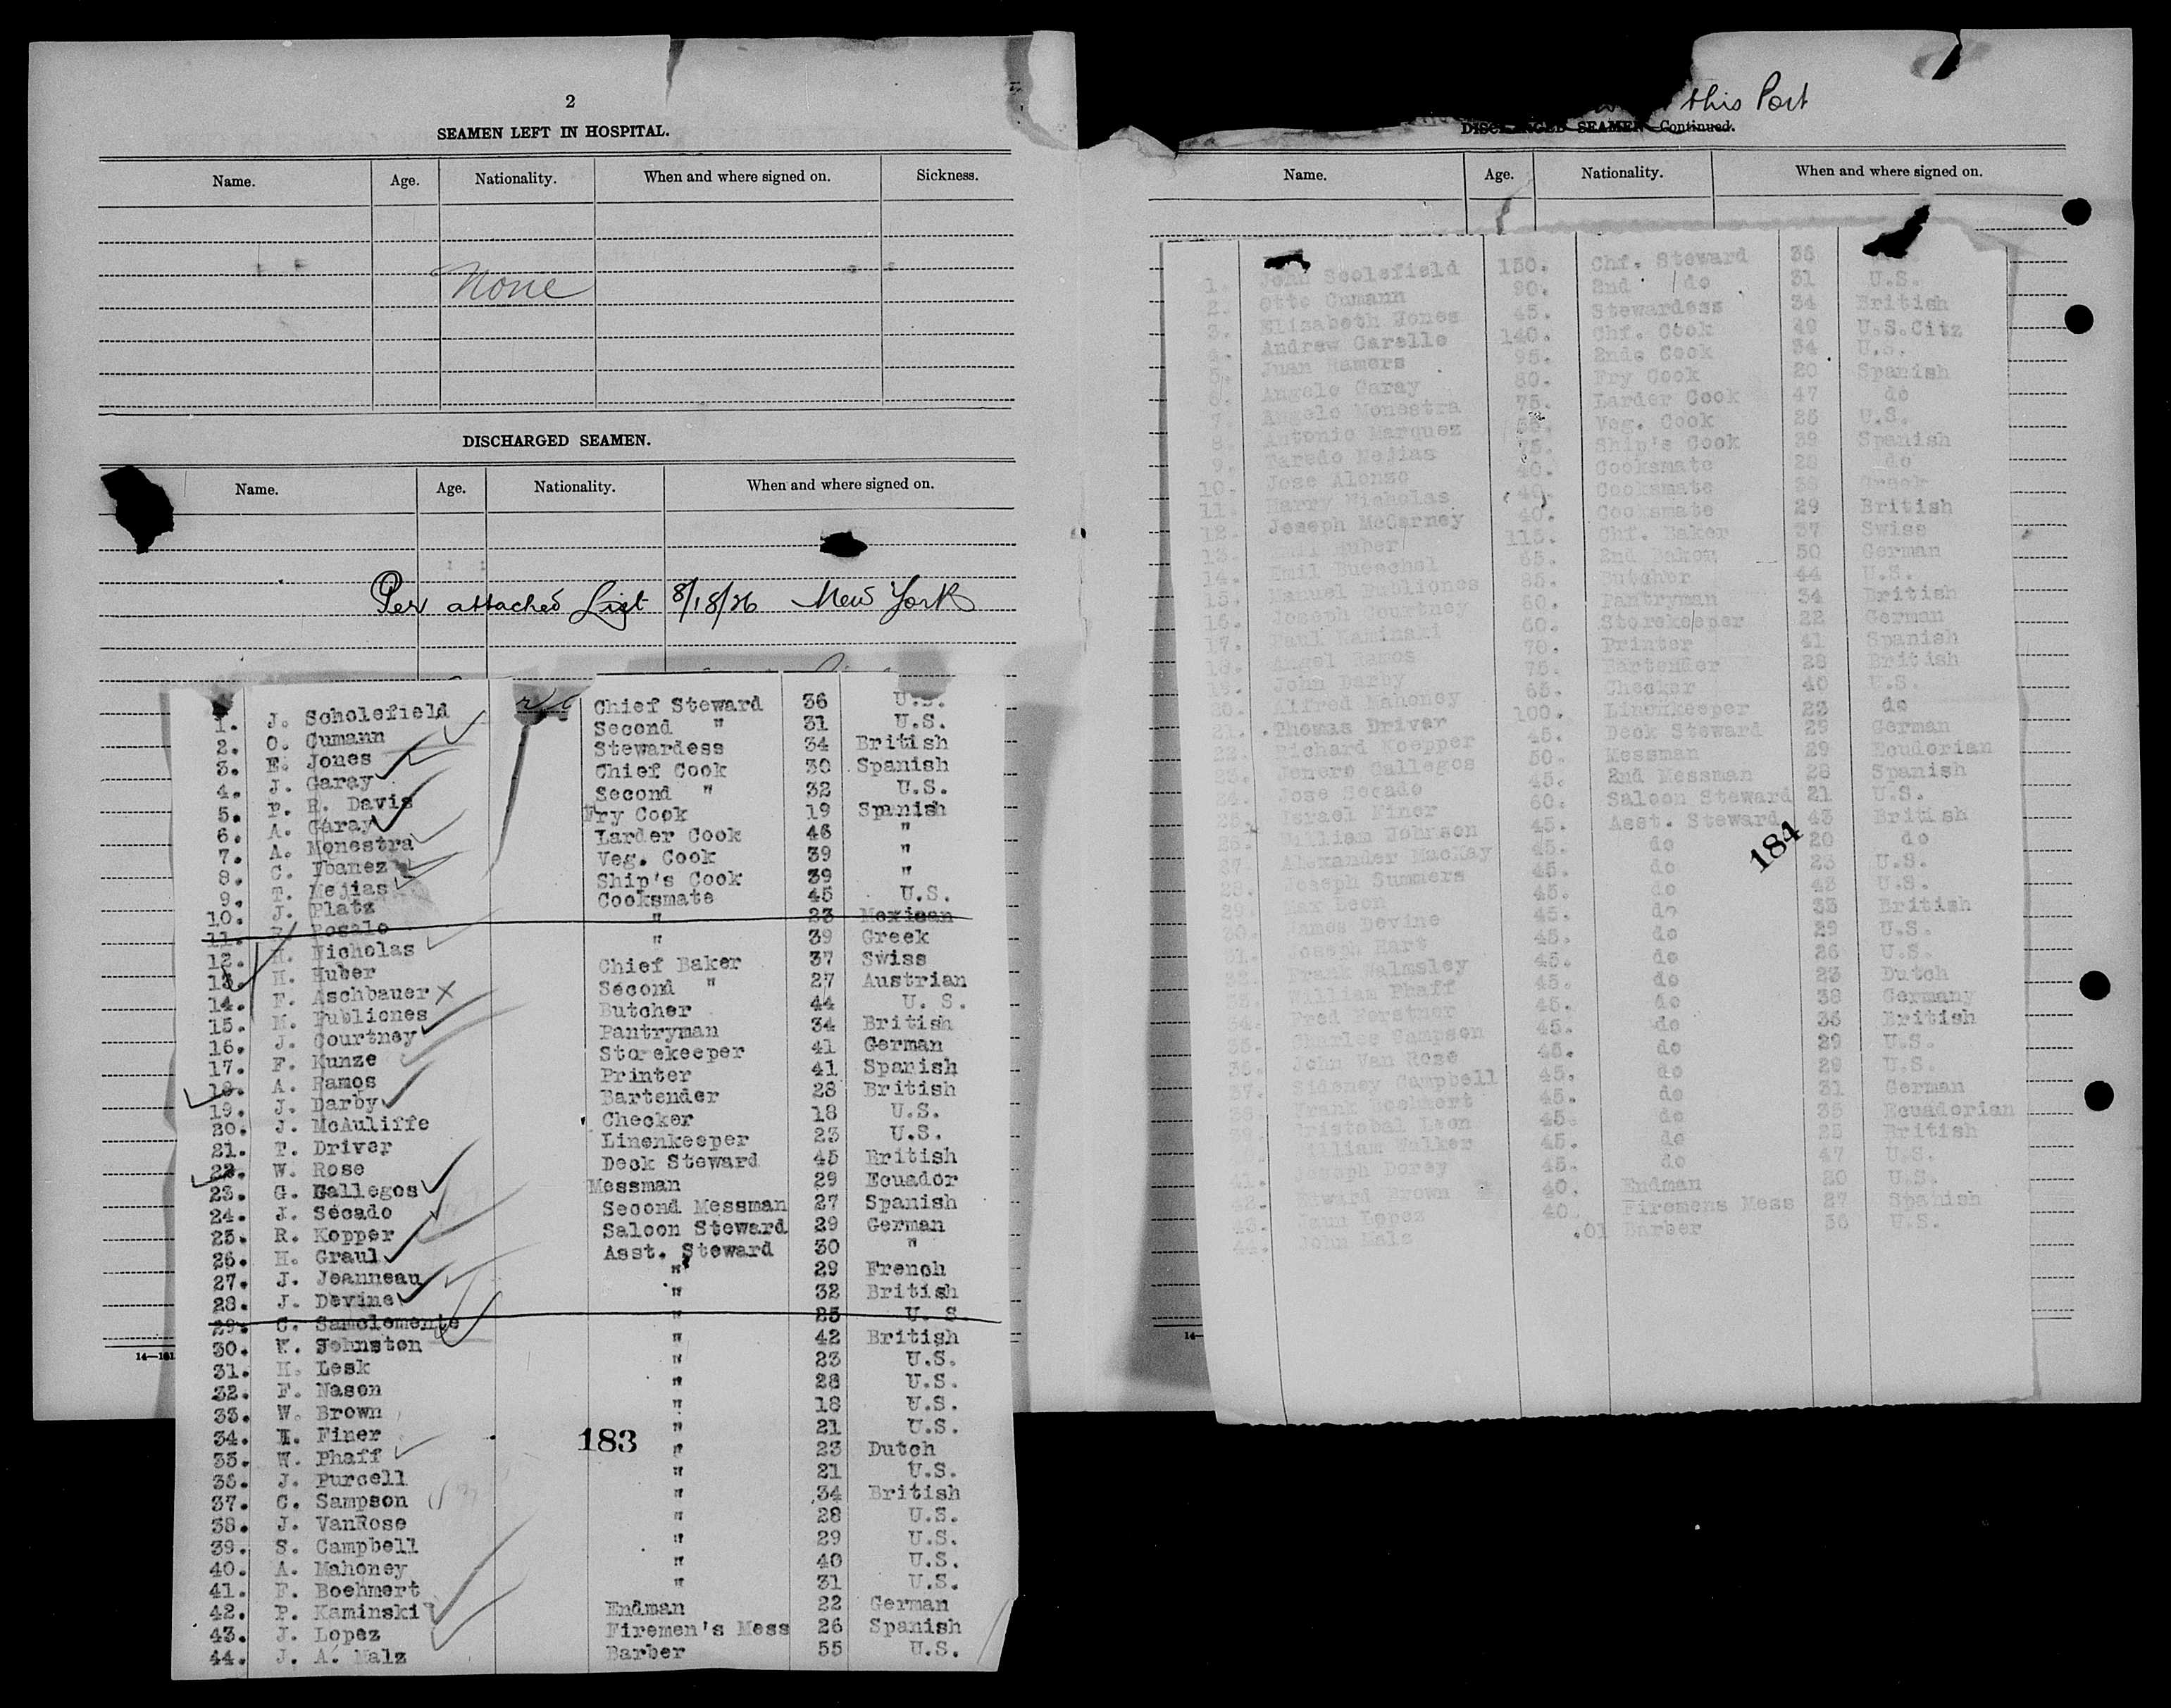 2
SEAMEN LEFT IN HOSPITAL.
Name. Age. Nationality. When and where signed on. Sickness.
None
DISCHARGED SEAMEN.
Name. Age. Nationality. When and where signed on.
Per attached List 8/18/26 New York
1. J. Scholefield Chief Steward 36 U.S.
2. O. Cumann Second " 31 U.S.
3. E. Jones Stewardess 34 British
4. J. Garay Chief Cook 30 Spanish
5. P. R. Davis Second " 32 U.S.
6. A. Garay Fry Cook 19 Spanish
7. A. Monestra Larder Cook 46 "
8. C. Ybanez Veg. Cook 39 "
9. T. Mejias Ship's Cook 39 "
10. J. Platz Cooksmate 45 U.S.
11. Rosale " 23 Mexican
12. H. Nicholas " 39 Greek
13. H. Huber Chief Baker 37 Swiss
14. F. Aschbauer Second " 27 Austrian
15. M. Publiones Butcher 44 U. S.
16. J. Courtney Pantryman 34 British
17. F. Kunze Storekeeper 41 German
18. A. Ramos Printer 41 Spanish
19. J. Darby Bartender 28 British
20. J. McAuliffe Checker 18 U.S.
21. T. Driver Linenkeeper 23 U.S.
22. W. Rose Deck Steward 45 British
23. G. Gallegos Messman 29 Ecuador
24. J. Secado Second Messman 27 Spanish
25. R. Kopper Saloon Steward 29 German
26. H. Graul Asst. Steward 30 "
27. J. Jeanneau " 29 French
28. J. Devine " 32 British
29. C. Sanclemente " 25 U. S.
30. W. Johnston " 42 British
31. H. Lesk " 23 U.S.
32. F. Nason " 28 U.S.
33. W. Brown " 18 U.S.
34. I. Finer " 21 U.S.
35. W. Phaff " 23 Dutch
36. J. Purcell " 21 U.S.
37. C. Sampson " 34 British
38. J. VanRose " 28 U.S.
39. S. Campbell " 29 U.S.
40. A. Mahoney " 40 U.S.
41. F. Boehmert " 31 U.S.
42. P. Kaminski Endman 22 German
43. J. Lopez Firemen's Mess 26 Spanish
44. J. A. Malz Barber 55 U.S.
183
14—161
this Port
DISCHARGED SEAMEN—Continued.
Name. Age. Nationality. When and where signed on.
1. John Scolefield 150. Chf. Steward 36
2. Otto Cumann 90. 2nd do 31 U.S.
3. Elizabeth Jones 45. Stewardess 34 British
4. Andrew Carello 140. Chf. Cook 49 U.S.Citz
5. Juan Ramers 95. 2nd. Cook 34 U.S.
6. Angelo Garay 80. Fry Cook 20 Spanish
7. Angelo Monestra 75. Larder Cook 47 do
8. Antonio Marquez Veg. Cook 26 U.S.
9. Taredo Mejias 75. Ship's Cook 39 Spanish
10. Jose Alonzo 40. Cooksmate 28 do
11. Harry Nicholas 40. Cooksmate 38 Greek
12. Joseph McCarney 40. Cooksmate 29 British
13. Emil Huber 115. Chf. Baker 37 Swiss
14. Emil Bueschel 65. 2nd Baker 50 German
15. Manuel Publiones 85. Butcher 44 U.S.
16. Joseph Courtney 60. Pantryman 34 British
17. Paul Kaminski 60. Storekeeper 22 German
18. Angel Ramos 70. Printer 41 Spanish
19. John Darby 75. Bartender 28 British
20. Alfred Mahoney 65. Checker 40 U.S.
21. Thomas Driver 100. Linenkeeper 23 do
22. Richard Koepper 45. Deck Steward 29 German
23. Jenero Gallegos 50. Messman 29 Ecudorian
24. Jose Secado 45. 2nd Messman 28 Spanish
25. Israel Finer 60. Saloon Steward 21 U.S.
26. William Johnson 45. Asst. Steward 43 British
27. Alexander MacKay 45. do 20 do
28. Joseph Summers 45. do 23 U.S.
29. Max Leon 45. do 43 U.S.
30. James Devine 45. do 33 British
31. Joseph Hart 45. do 29 U.S.
32. Frank Walmsley 45. do 26 U.S.
33. William Phaff 45. do 23 Dutch
34. Fred Forstner 45. do 38 Germany
35. Charles Sampson 45. do 36 British
36. John Van Rose 45. do 29 U.S.
37. Sideney Campbell 45. do 29 U.S.
38. Frank Boehmert 45. do 31 German
39. Cristobal Leon 45. do 35 Ecuadorian
William Walker 45. do 25 British
41. Joseph Dorsy 45. do 47 U.S.
42. Edward Brown 40. Endman 20 U.S.
43. Juan Lopez 40. Firemens Mess 27 Spanish
44. John Malz .01 Barber 56 U.S.
184
14—